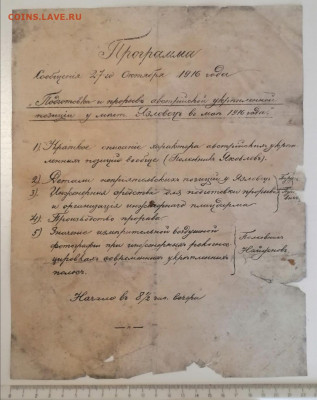 COINS.LAVE.RU
Программа
Сообщения 27го Октября 1916 года
„Подготовка и прорыва австрийской укрепленной
позиции у мест. Язловец в мае 1916 года“
1) Краткое описание характера австрийских укре
пленных позиций вообще (Полковник Яковлев).
2) Детали неприятельских позиций у Язловца
3) Инженерные средства для подготовки прорыва
и организация инженерного плацдарма
4) Производство прорыва
5) Значение измерительной воздушной
фотографии при инженерных
современных укрепленных
Полковник
Начало в 8½ час. вечера